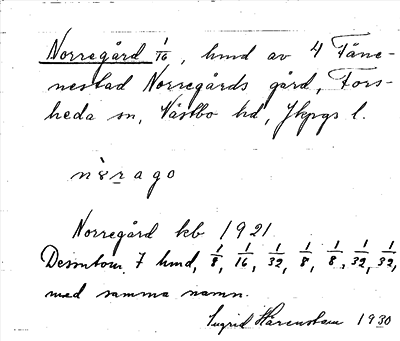 Norregård 1/16, hmd av 4 Fåne-
nestad Norregårds gård, Fors-
heda sn, Västbo hd, Jkpgs l.
nòrago
Norregård kb 1921.
Dessutom 7 hmd, 1/8, 1/16, 1/32, 1/8, 1/8, 1/32, 1/32,
med samma namn.
Ingrid Härenstam 1930